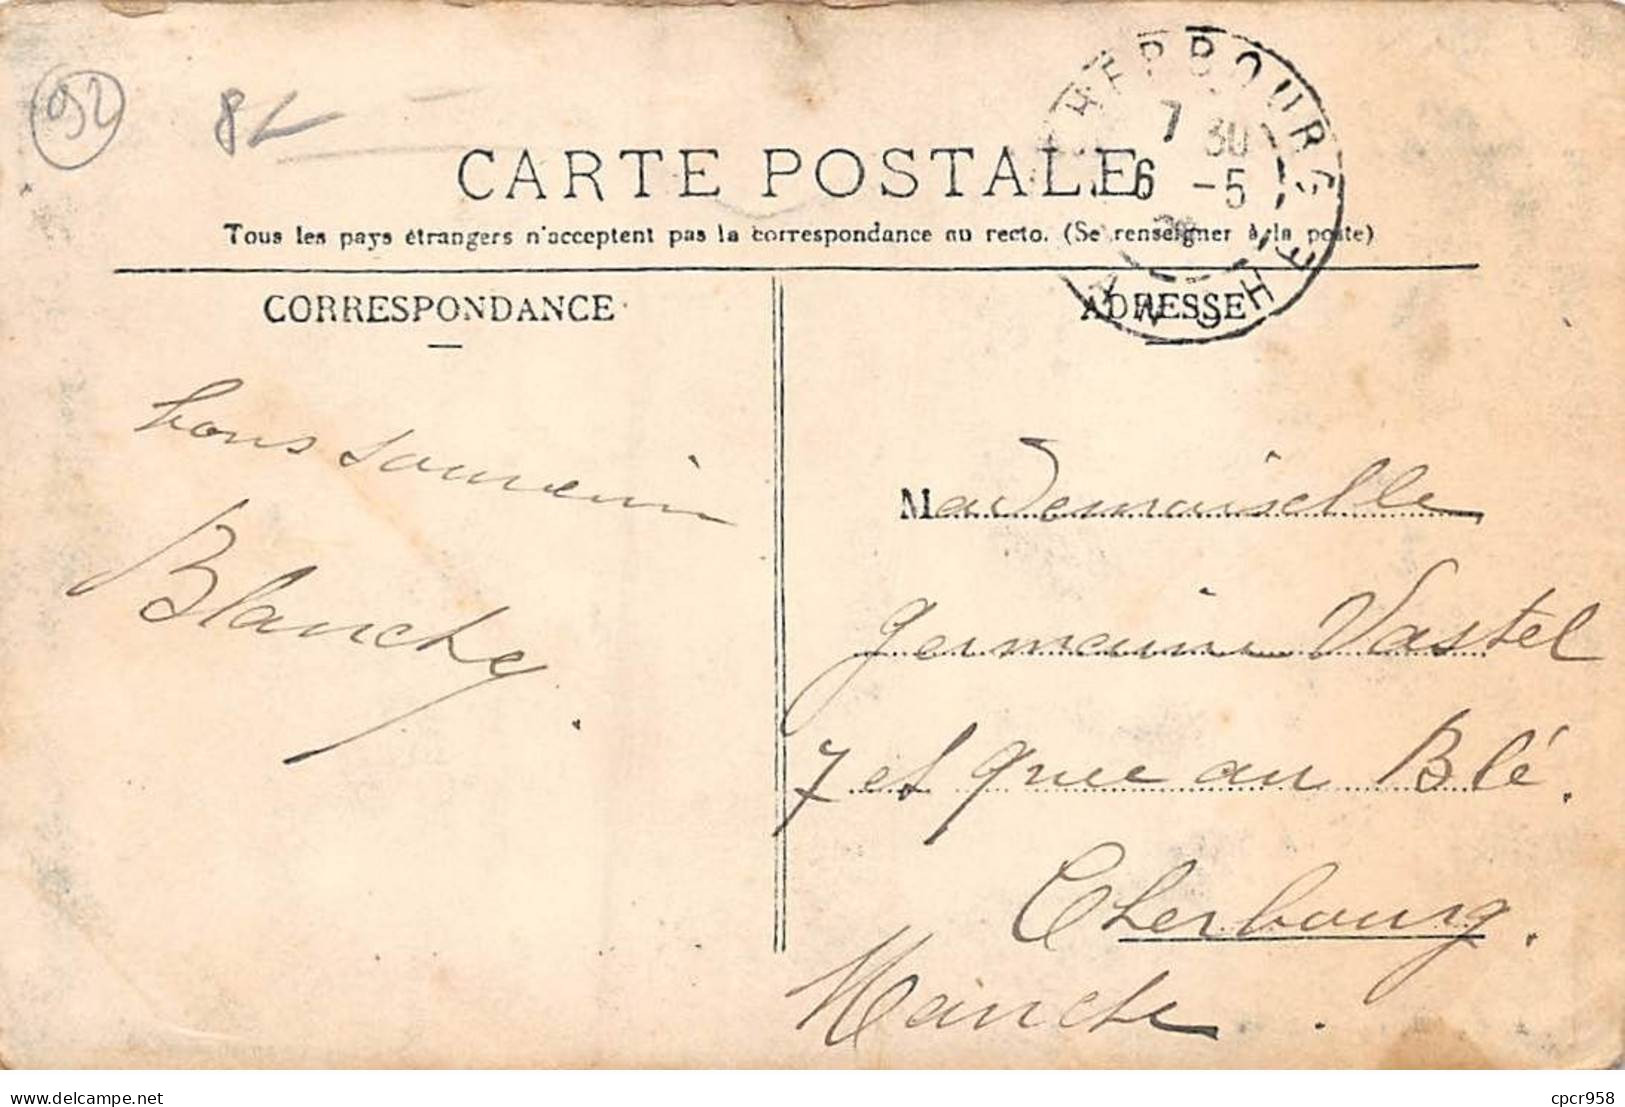 92
CARTE POSTALE
Tous les pays étrangers n'acceptent pas la correspondance au recto. (Se renseigner à la poste)
CHERBOURG
7 30
6 -5
MANCHE
CORRESPONDANCE
ADRESSE
bons souvenir
Blanche
Mademoiselle
Germaine Vastel
7 et que au Blé.
Cherbourg.
Manche.
delcampe.net
cpcr958